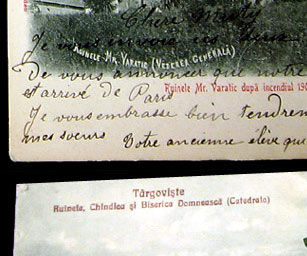 Chère
Je
RUINELE MR. VARATIC (VEDEREA GENERALĂ)
De vous annoncer que notre
Ruinele Mr. Varatic după incendiul 190
est arrivé de Paris
Je vous embrasse bien tendrem
mes soeurs
Votre ancienne élève qui
Târgoviște
Ruinele, Chindiea și Biserica Domnească (Catedrala)